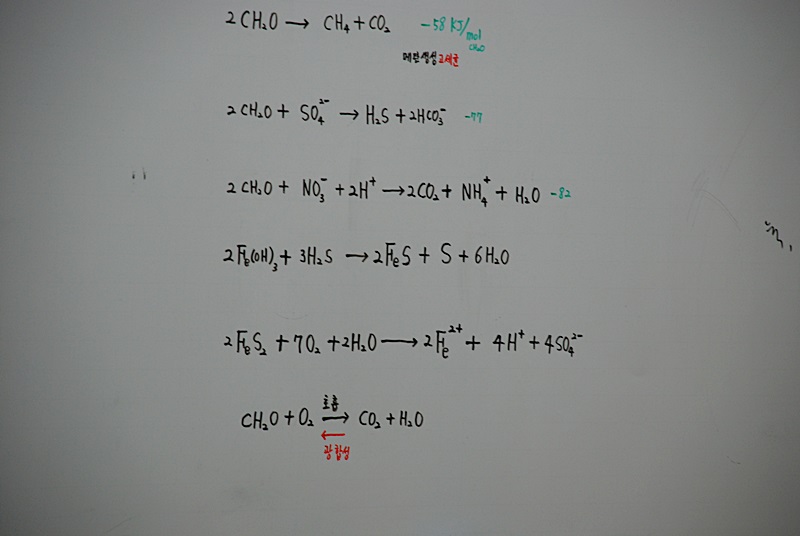 2CH₂O → CH₄ + CO₂ -58 KJ/mol CH₂O
메탄생성고세균
2CH₂O + SO₄²⁻ → H₂S + 2HCO₃⁻ -77
2CH₂O + NO₃⁻ + 2H⁺ → 2CO₂ + NH₄⁺ + H₂O -82
2Fe(OH)₃ + 3H₂S → 2FeS + S + 6H₂O
2FeS₂ + 7O₂ + 2H₂O → 2Fe²⁺ + 4H⁺ + 4SO₄²⁻
호흡
CH₂O + O₂ → CO₂ + H₂O
←
광합성